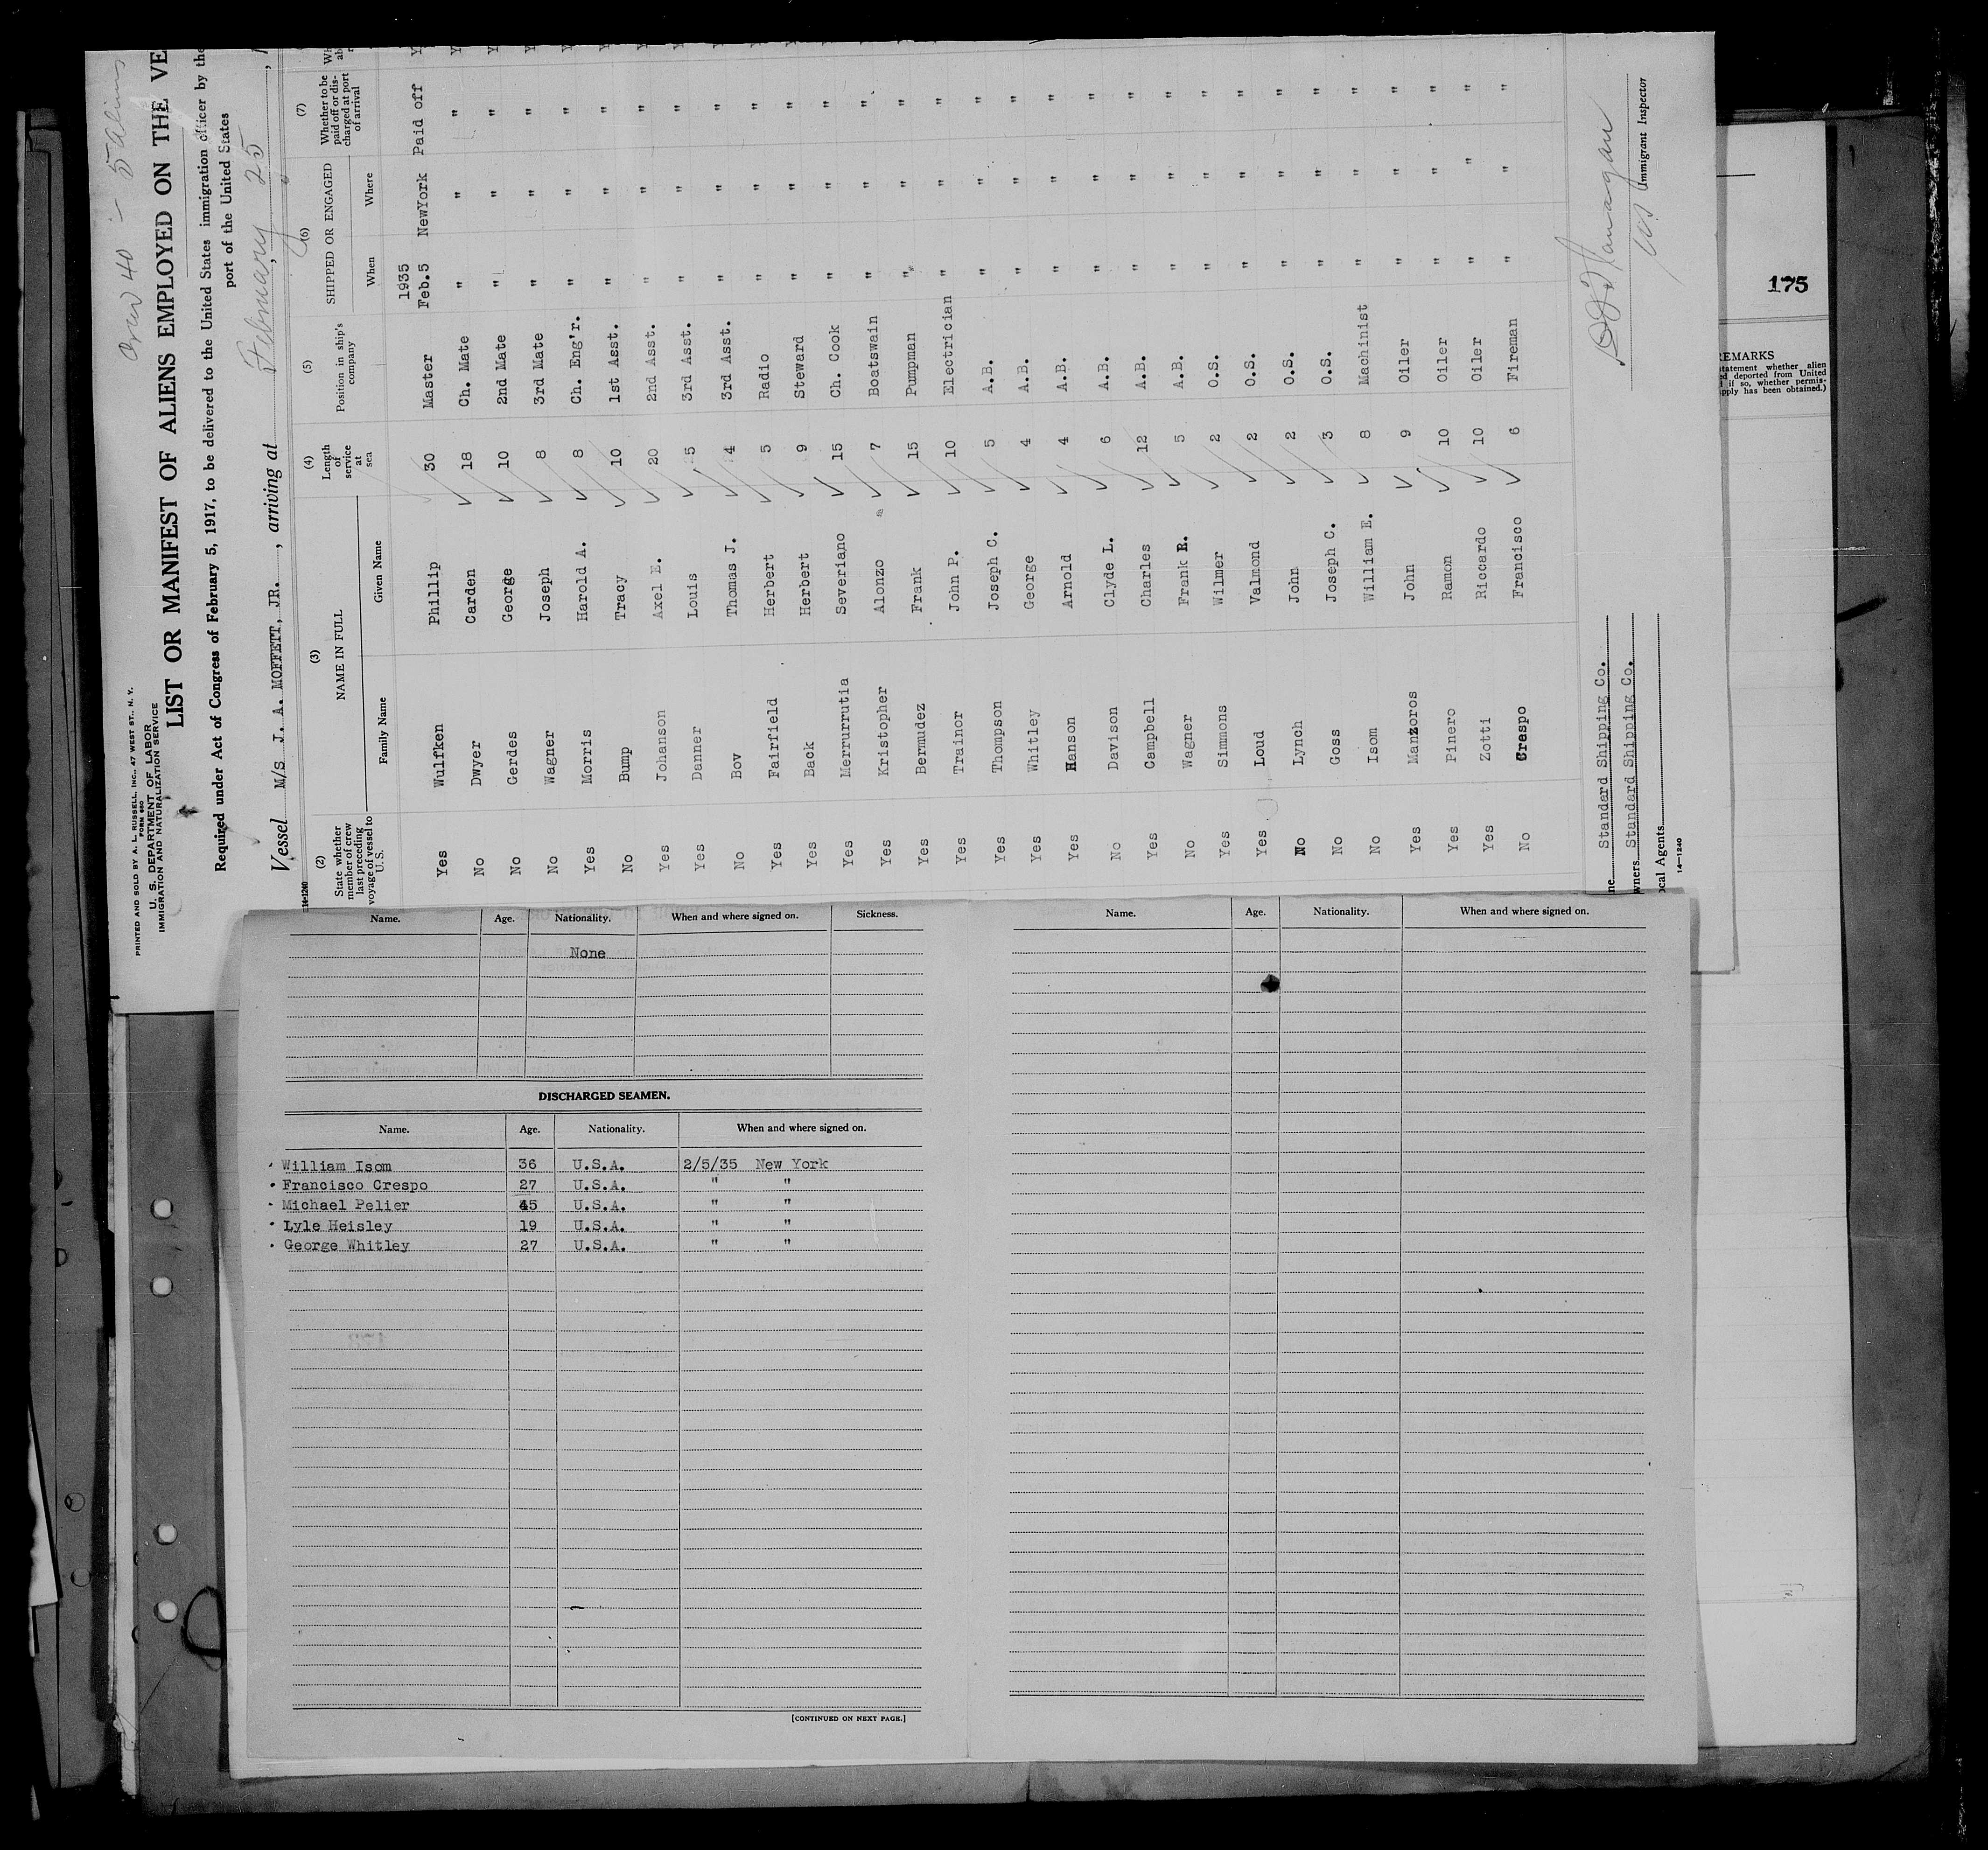 Crew 40 - 5 Aliens
PRINTED AND SOLD BY A. L. RUSSELL, INC., 47 WEST ST., N. Y.
FORM 680
U. S. DEPARTMENT OF LABOR
IMMIGRATION AND NATURALIZATION SERVICE
LIST OR MANIFEST OF ALIENS EMPLOYED ON THE VE
Required under Act of Congress of February 5, 1917, to be delivered to the United States immigration officer by the
port of the United States
Vessel M/S J. A. MOFFETT, JR. , arriving at February 25 ,
14-1240
(2) (3) (4) (5) (6) (7)
State whether member of crew last preceding voyage of vessel to U. S. NAME IN FULL Length of service at sea Position in ship's company SHIPPED OR ENGAGED Whether to be paid off or discharged at port of arrival
Family Name Given Name When Where
1935
Yes Wulfken Phillip 30 Master Feb.5 NewYork Paid off Y
No Dwyer Carden 18 Ch. Mate " " " Y
No Gerdes George 10 2nd Mate " " " Y
No Wagner Joseph 8 3rd Mate " " " Y
Yes Morris Harold A. 8 Ch. Eng'r. " " " Y
No Bump Tracy 10 1st Asst. " " " Y
Yes Johanson Axel E. 20 2nd Asst. " " " Y
Yes Danner Louis 5 3rd Asst. " " " Y
No Bov Thomas J. 4 3rd Asst. " " " Y
Yes Fairfield Herbert 5 Radio " " "
Yes Back Herbert 9 Steward " " "
Yes Merrurrutia Severiano 15 Ch. Cook " " "
Yes Kristopher Alonzo 7 Boatswain " " "
Yes Bermudez Frank 15 Pumpman " " "
Yes Trainor John P. 10 Electrician " " "
Yes Thompson Joseph C. 5 A.B. " " "
Yes Whitley George 4 A.B. " " "
Yes Hanson Arnold 4 A.B. " " "
No Davison Clyde L. 6 A.B. " " "
Yes Campbell Charles 12 A.B. " " "
No Wagner Frank R. 5 A.B. " " "
Yes Simmons Wilmer 2 O.S. " " "
Yes Loud Valmond 2 O.S. " " "
No Lynch John 2 O.S. " " "
No Goss Joseph C. 3 O.S. " " "
No Isom William E. 8 Machinist " " "
Yes Manzoros John 9 Oiler " " "
Yes Pinero Ramon 10 Oiler " " "
Yes Zotti Riccardo 10 Oiler " " "
No Crespo Francisco 6 Fireman " " "
ne Standard Shipping Co.
wners Standard Shipping Co.
ocal Agents
14-1240
Immigrant Inspector
175
REMARKS
statement whether alien
ed deported from United
d if so, whether permis-
apply has been obtained.)
Name. Age. Nationality. When and where signed on. Sickness.
None
DISCHARGED SEAMEN.
Name. Age. Nationality. When and where signed on.
William Isom 36 U.S.A. 2/5/35 New York
Francisco Crespo 27 U.S.A. " "
Michael Pelier 45 U.S.A. " "
Lyle Heisley 19 U.S.A. " "
George Whitley 27 U.S.A. " "
[CONTINUED ON NEXT PAGE.]
Name. Age. Nationality. When and where signed on.